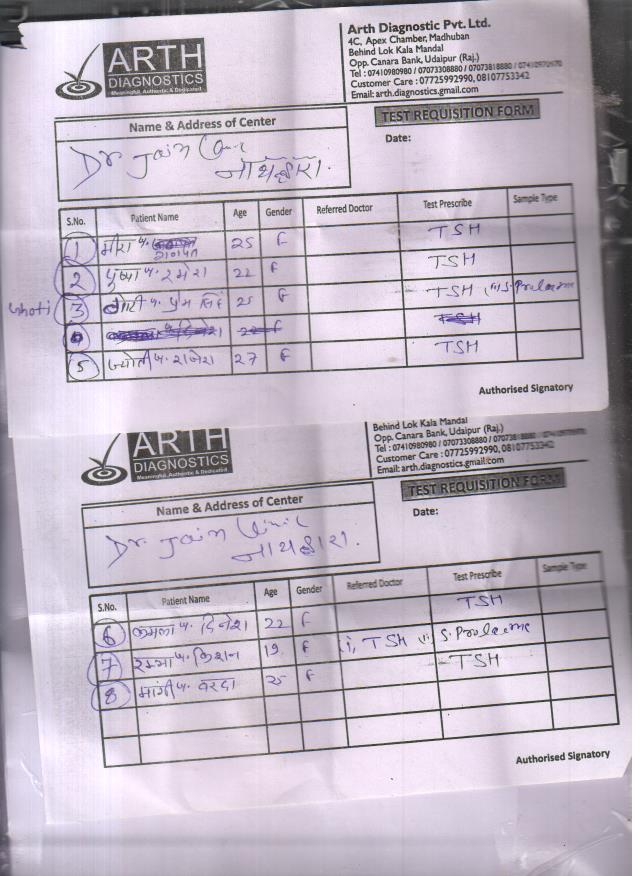 ARTH
DIAGNOSTICS
Meaningful, Authentic & Dedicated.
Arth Diagnostic Pvt. Ltd.
4C, Apex Chamber, Madhuban
Behind Lok Kala Mandal
Opp. Canara Bank, Udaipur (Raj.)
Tel : 07410980980 / 07073308880 / 07073818880 / 07410970970
Customer Care : 07725992990, 08107753342
Email: arth.diagnostics.gmail.com
TEST REQUISITION FORM
Name & Address of Center
Date:
Dr Jain Clinic
नाथद्वारा.
S.No. Patient Name Age Gender Referred Doctor Test Prescribe Sample Type
1 मीरा प. 25 F TSH
2 पुष्पा प. रमेश 22 F TSH
3 प. प्रेम सिंह 25 F TSH (ii) S. Prolactine
5 ज्योती प. राजेश 27 F TSH
Authorised Signatory
ARTH
DIAGNOSTICS
Meaningful, Authentic & Dedicated.
Behind Lok Kala Mandal
Opp. Canara Bank, Udaipur (Raj.)
Tel : 07410980980 / 07073308880 / 07073818880 /
Customer Care : 07725992990, 08107753342
Email: arth.diagnostics.gmail.com
TEST REQUISITION FORM
Name & Address of Center
Date:
Dr. Jain Clinic
नाथद्वारा.
S.No. Patient Name Age Gender Referred Doctor Test Prescribe Sample Type
6 कमला प. दिनेश 22 F TSH
7 प. किशन 19 F i, TSH (ii) S. Prolactine
8 मांगी प. वरदा 25 F TSH
Authorised Signatory